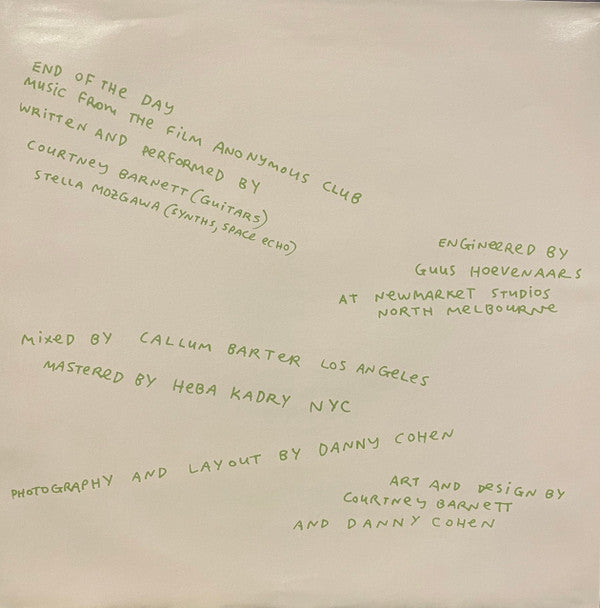 END OF THE DAY
MUSIC FROM THE FILM ANONYMOUS CLUB
WRITTEN AND PERFORMED BY
COURTNEY BARNETT (GUITARS)
STELLA MOZGAWA (SYNTHS, SPACE ECHO)
ENGINEERED BY
GUUS HOEVENAARS
AT NEWMARKET STUDIOS
NORTH MELBOURNE
MIXED BY CALLUM BARTER LOS ANGELES
MASTERED BY HEBA KADRY NYC
PHOTOGRAPHY AND LAYOUT BY DANNY COHEN
ART AND DESIGN BY
COURTNEY BARNETT
AND DANNY COHEN